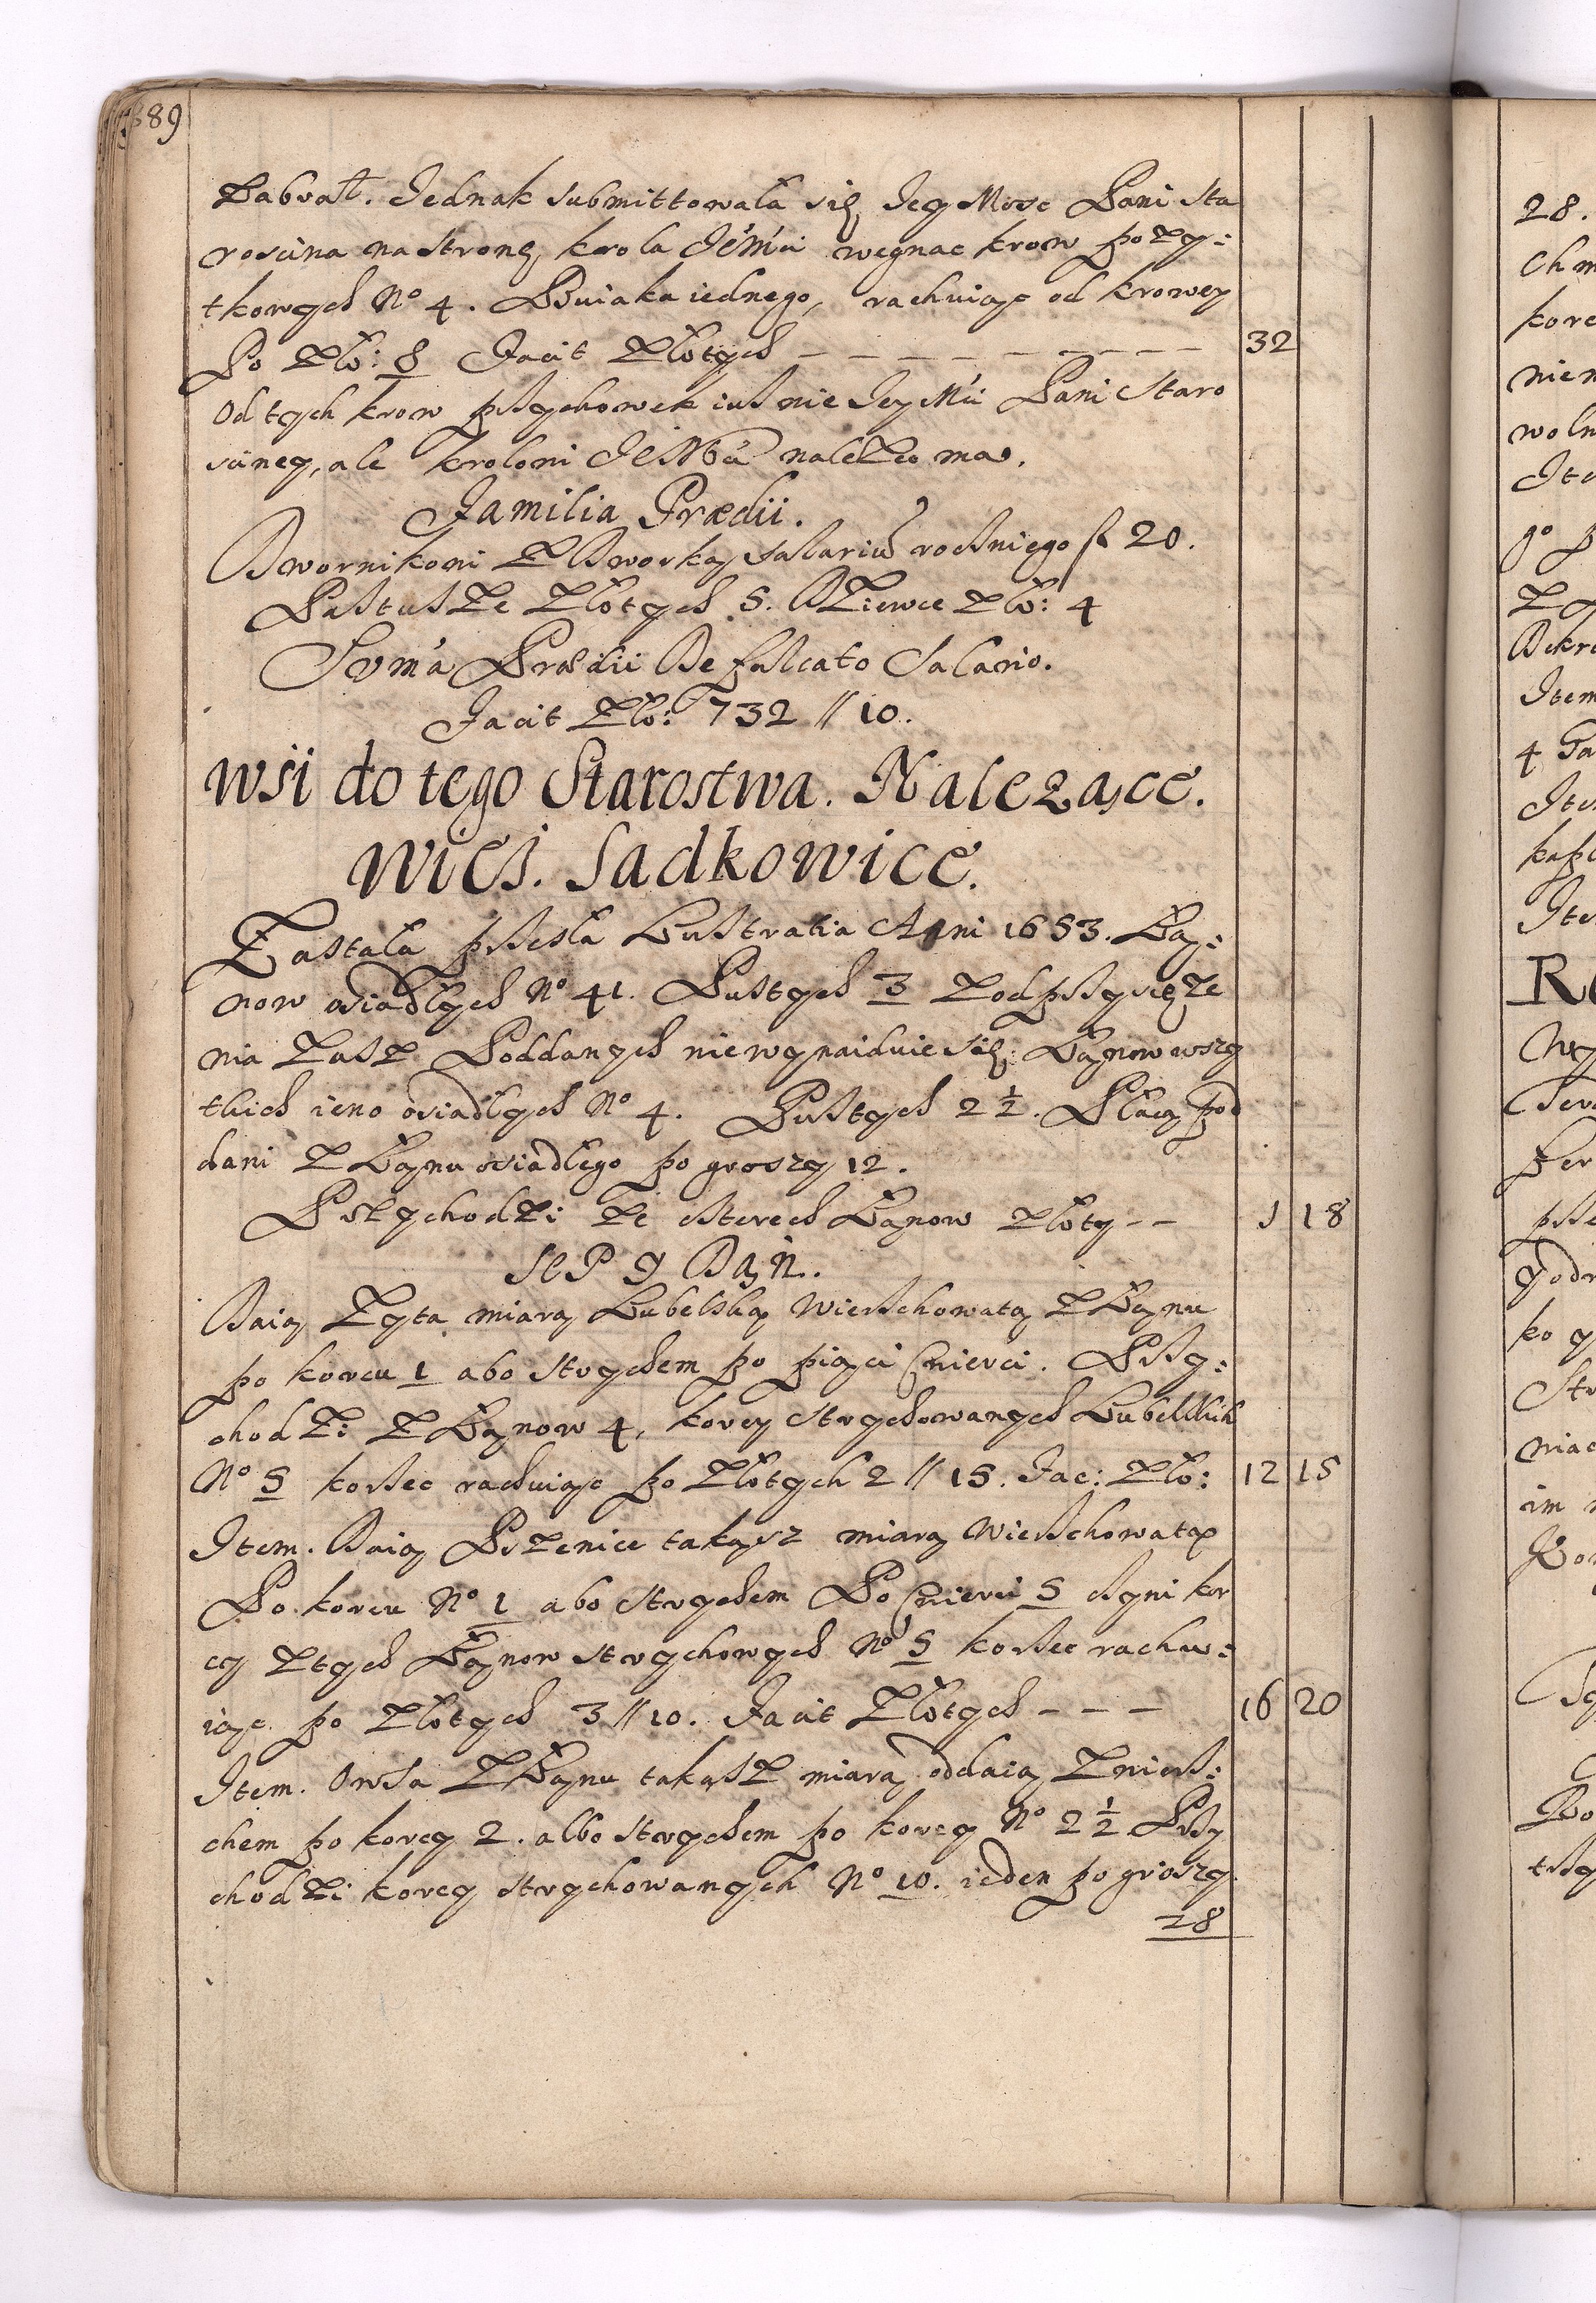 689
Zabrał. Jednak submittowała się Jey Mosc Pani Sta
roscina na stronę krola JeMci wegnac krow pozy:
tkowych No 4. Buiaka iednego, rachuiąc od krowey
Po Zło: 8 Facit Złotych — — — — — — — — 32
Od tych krow przychowek iusz nie Jey Mci Pani Staro
sciney, ale krolowi JeMci nalezec ma.
Familia Prædii.
Dwornikowi Z Dworką salariu roczniego f 20.
Pastusze Złotych 5. Dziewce Zło: 4
Suma Prædii Defalcato Salario.
Facit Zło: 732 // 10.
Wsi do tego Starostwa. Nalezące.
Wies. Sadkowice.
Zastała przeszła Lustratia Anni 1653. Łą:
now osiadłych No 41. Pustych 3 Z od przysięze
nia Zasz Poddanych nie wynaiduie się. Łąnow wszy
tkich ieno osiadłych No 4. Pustych 2 ½. Płacą pod
dani Z Łąnu osiadłego po groszy 12.
Przychodzi Ze czterech Łąnow Złoty — — 1 18
Sep y Dąń.
Daią Zyta miarą Lubelską Wierzchowatą Z Łąnu
po korcu 1 abo strychem po piąci cwierci. Przy:
chodzi Z Łąnow 4, korcy strychowanych Lubelskich
No 5 korzec rachuiąc po Złotych 2 // 15. Fac: Zło: 12 15
Item. Daią Pszenice takąsz miarą Wierzchowatą
Po korcu No 1 abo strychem Po cwierci 5 czyni kor
cy Z tych Łąnow strychowych No 5 korzec rachu:
iąc po Złotych 3 // 10. Facit Złotych — — — 16 20
Item. Owsa Z Łąnu takąsz miarą oddaią Z wierz:
chem po korcy 2. albo strychem po korcy No 2 ½ Przy
chodzi korcy strychowanych No 10. ieden po groszy
28